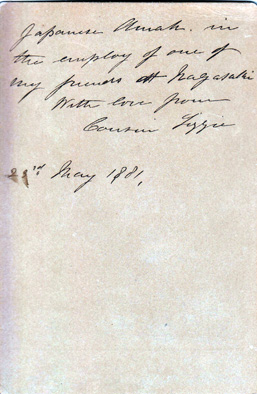 Japanese Amah. in
the employ of one of
my friends at Nagasaki
With love from
Cousin Lizzie
May 1881,